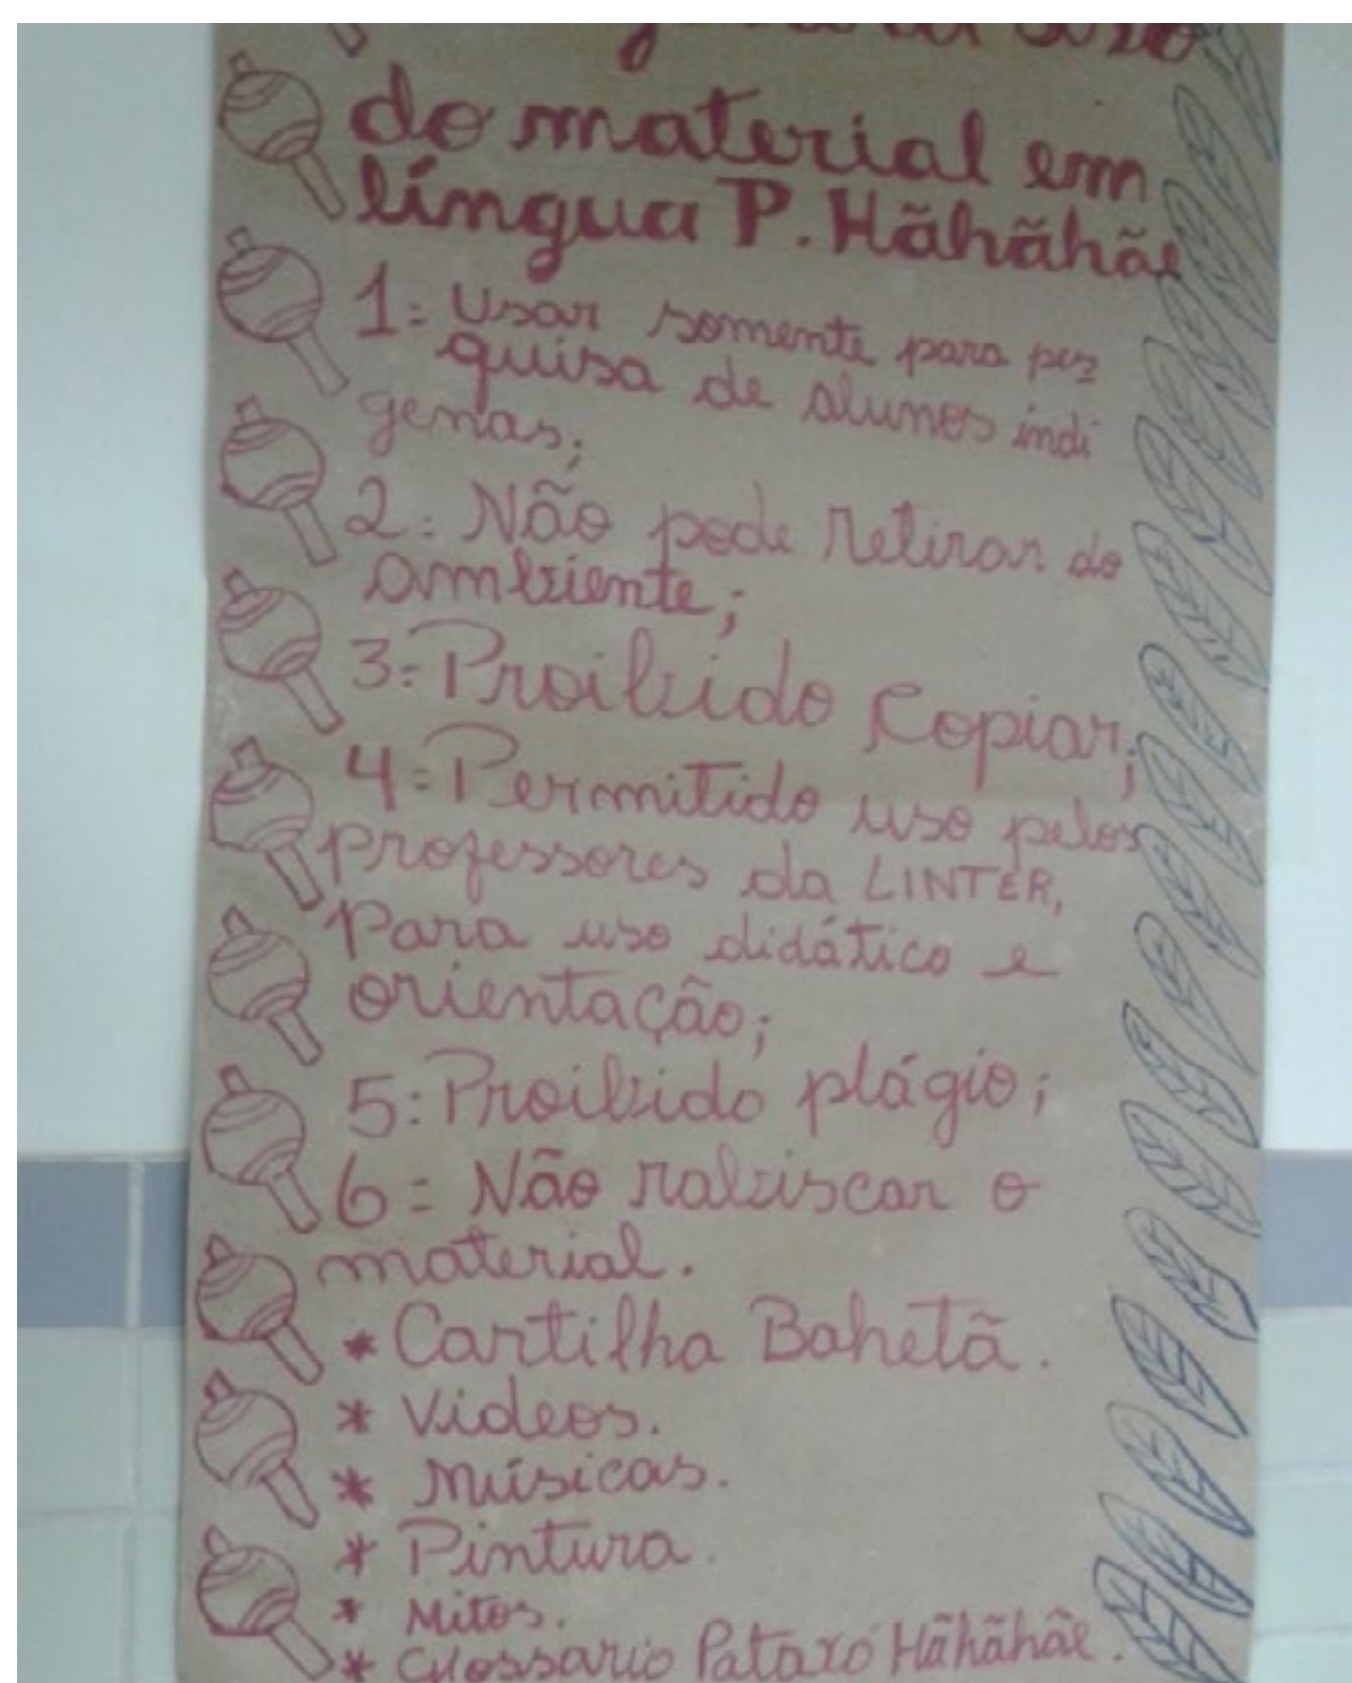 para uso
do material em
língua P. Hãhãhãe
1= Usar somente para pes
quisa de alunos indi
genas;
2= Não pode retirar do
ambiente;
3= Proibido copiar;
4= Permitido uso pelos
professores da LINTER,
para uso didático e
orientação;
5= Proibido plágio;
6= Não rabiscar o
material.
* Cartilha Bahetã.
* Videos.
* Músicas.
* Pintura.
* Mitos.
* Glossario Pataxó Hãhãhãe.